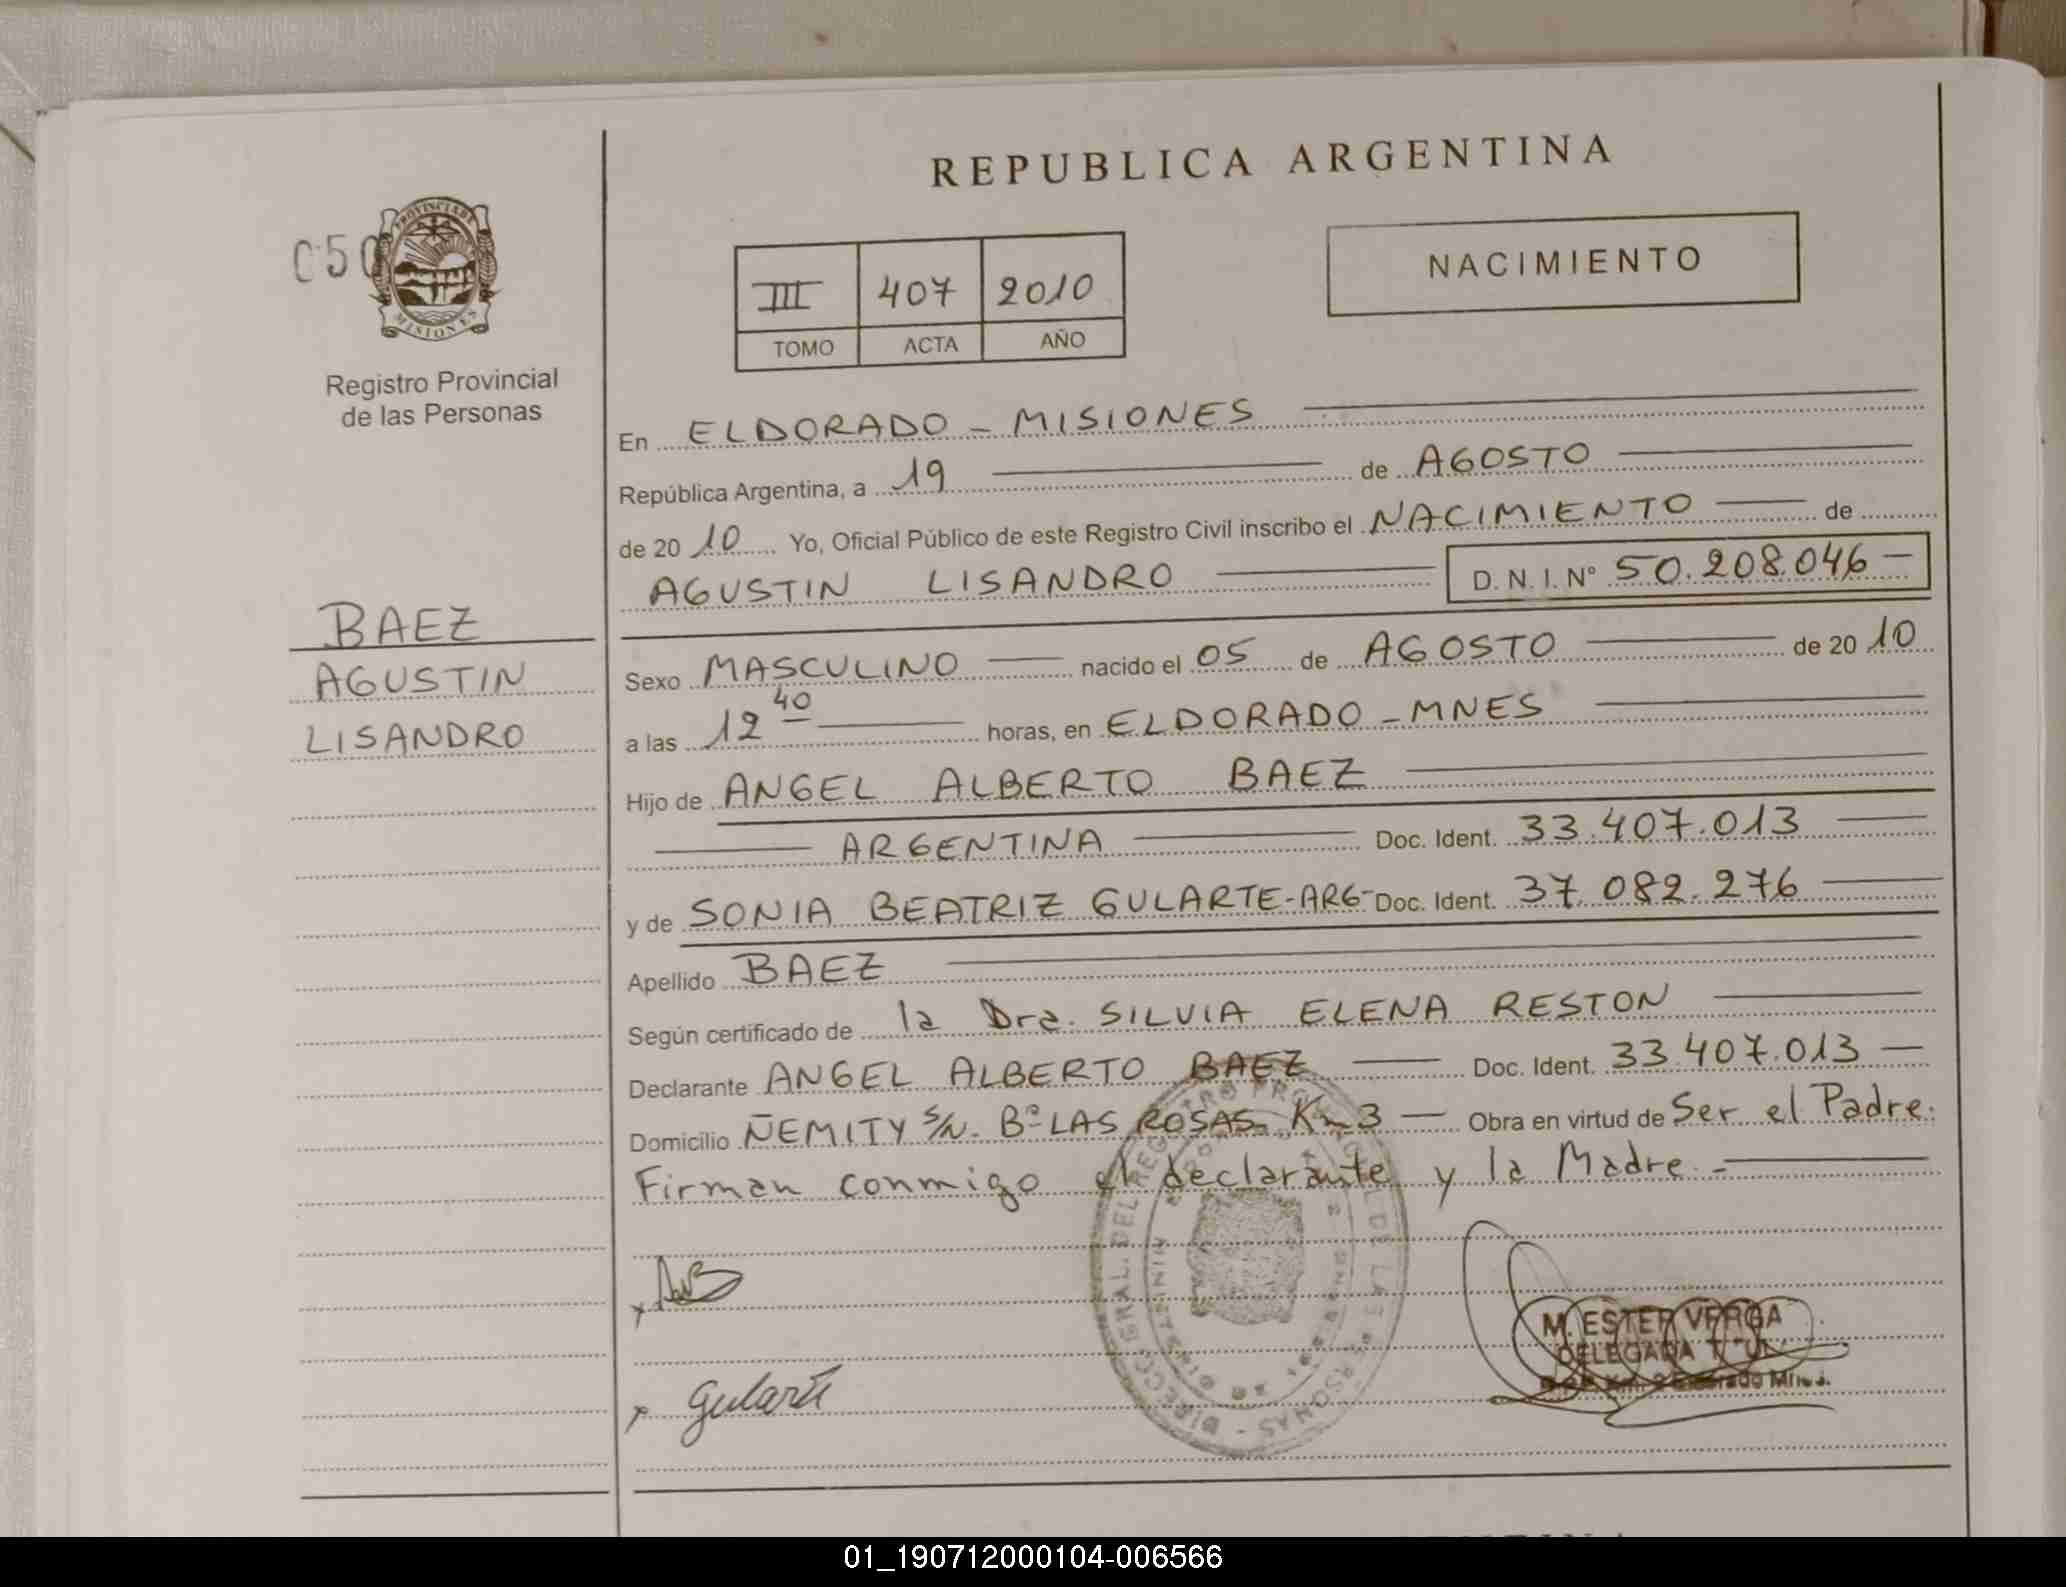 REPUBLICA ARGENTINA
C50
PROVINCIA DE
MISIONES
Registro Provincial
de las Personas
III 407 2010
TOMO ACTA AÑO
NACIMIENTO
En ELDORADO - MISIONES
República Argentina, a 19 de AGOSTO
de 2010 Yo, Oficial Público de este Registro Civil inscribo el NACIMIENTO de
AGUSTIN LISANDRO D. N. I. Nº 50.208.046
BAEZ
AGUSTIN
LISANDRO
Sexo MASCULINO nacido el 05 de AGOSTO de 2010
a las 12 40 horas, en ELDORADO - MNES
Hijo de ANGEL ALBERTO BAEZ
ARGENTINA Doc. Ident. 33.407.013
y de SONIA BEATRIZ GULARTE - ARG - Doc. Ident. 37.082.276
Apellido BAEZ
Según certificado de la Dra. SILVIA ELENA RESTON
Declarante ANGEL ALBERTO BAEZ Doc. Ident. 33.407.013
Domicilio ÑEMITY S/N. Bº LAS ROSAS. Km 3 Obra en virtud de Ser el Padre.
Firman conmigo el declarante y la Madre.-
x
x Gularte
DIRECC. GRAL. DEL REGISTRO PROVINCIAL DE LAS PERSONAS
M. ESTER VERGA
DELEGADA
01_190712000104-006566